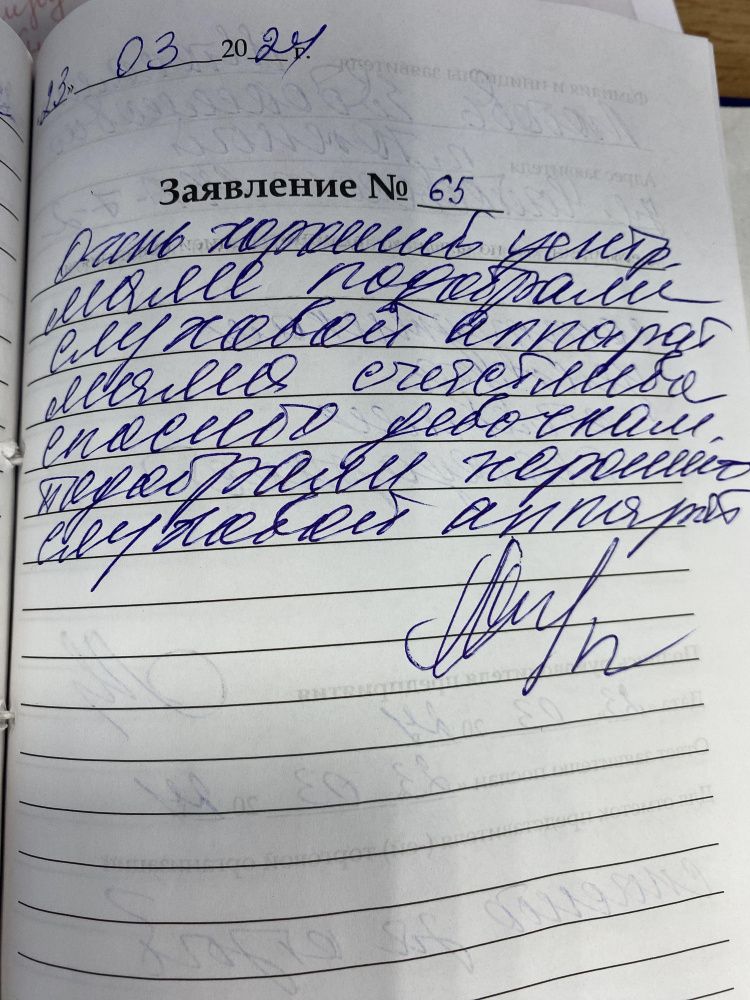 «23» 03 2024 г.
Заявление № 65
Очень хороший центр,
маме подобрали
слуховой аппарат
мама счастлива
спасибо девочкам,
подобрали хороший
слуховой аппарат